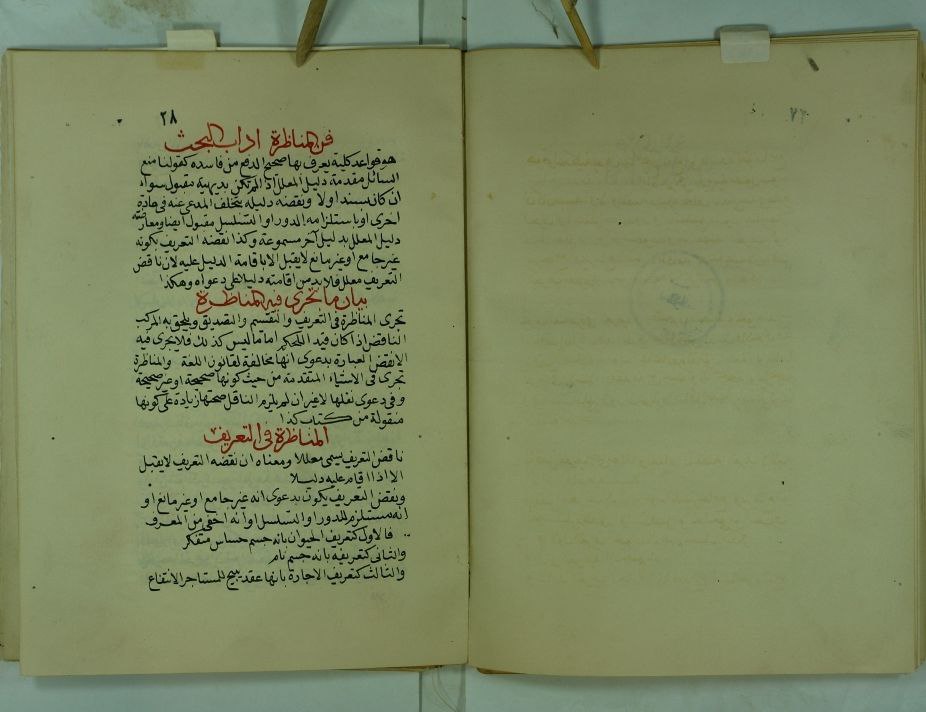 ٢٨
فن المناظرة اداب البحث
هو قواعد كلية يعرف بها صحيح الدفع من فاسده كقولنا منع
السائل مقدمة دليل المعلل اذا لم تكن بديهية مقبول سواء
ان كان بسند اولا ونقضه دليله بتخلف المدعى عنه في مادة
اخرى او باستلزامه الدور او التسلسل مقبول ايضا ومعارضته
دليل المعلل بدليل آخر مسموعة وكذا نقضه التعريف بكونه
غير جامع او غير مانع لا يقبل الا باقامة الدليل عليه لان ناقض
التعريف معلل فلا بد من اقامته دليلا على دعواه وهكذا
بيان ما تجرى فيه المناظرة
تجرى المناظرة في التعريف والتقسيم والتصديق ويلحق به المركب
الناقض اذا كان قيد للحكم اما ما ليس كذلك فلا يجرى فيه
الا نقض العبارة بدعوى انها مخالفة لقانون اللغة والمناظرة
تجرى في الاشياء المتقدمة من حيث كونها صحيحة او غير صحيحة
وفي دعوى نقلها لا غير ان لم يلتزم الناقل صحتها زيادة على كونها
منقولة من كتاب كذا
المناظرة في التعريف
ناقض التعريف يسمى معللا ومعناه ان نقضه التعريف لا يقبل
الا اذا اقام عليه دليلا
ونقض التعريف يكون بدعوى انه غير جامع او غير مانع او
انه مستلزم للدور او التسلسل او انه اخفى من المعرف
فالاول كتعريف الحيوان بانه جسم حساس متفكر
والثانى كتعريفه بانه جسم نام
والثالث كتعريف الاجارة بانها عقد يبيح للمستاجر الانتفاع